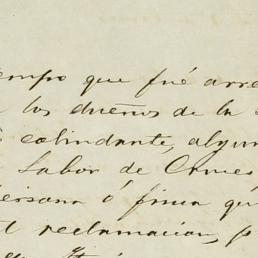 empo que fué arre
los dueños de la
colindante, algun
Labor de Cruces
ersona ó finca qu
reclamacion, p